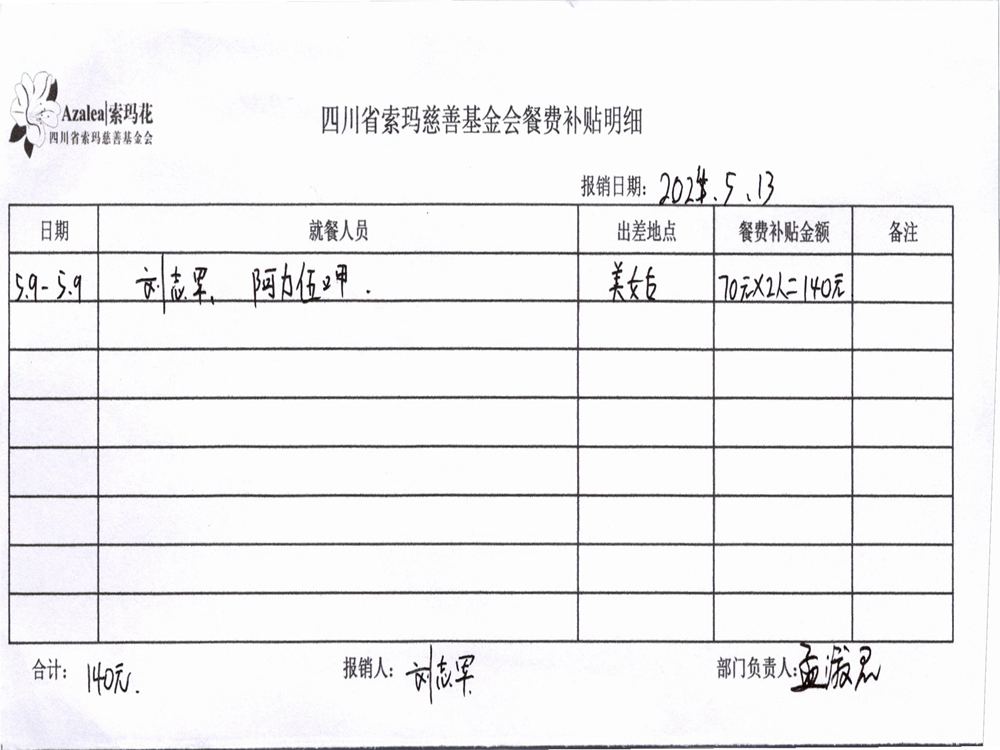 Azalea|索玛花
四川省索玛慈善基金会
四川省索玛慈善基金会餐费补贴明细
报销日期: 2024.5.13
日期 就餐人员 出差地点 餐费补贴金额 备注
5.9-5.9 刘志军、阿力伍甲. 美姑 70元×2人=140元
合计: 140元.
报销人: 刘志军
部门负责人: 孟